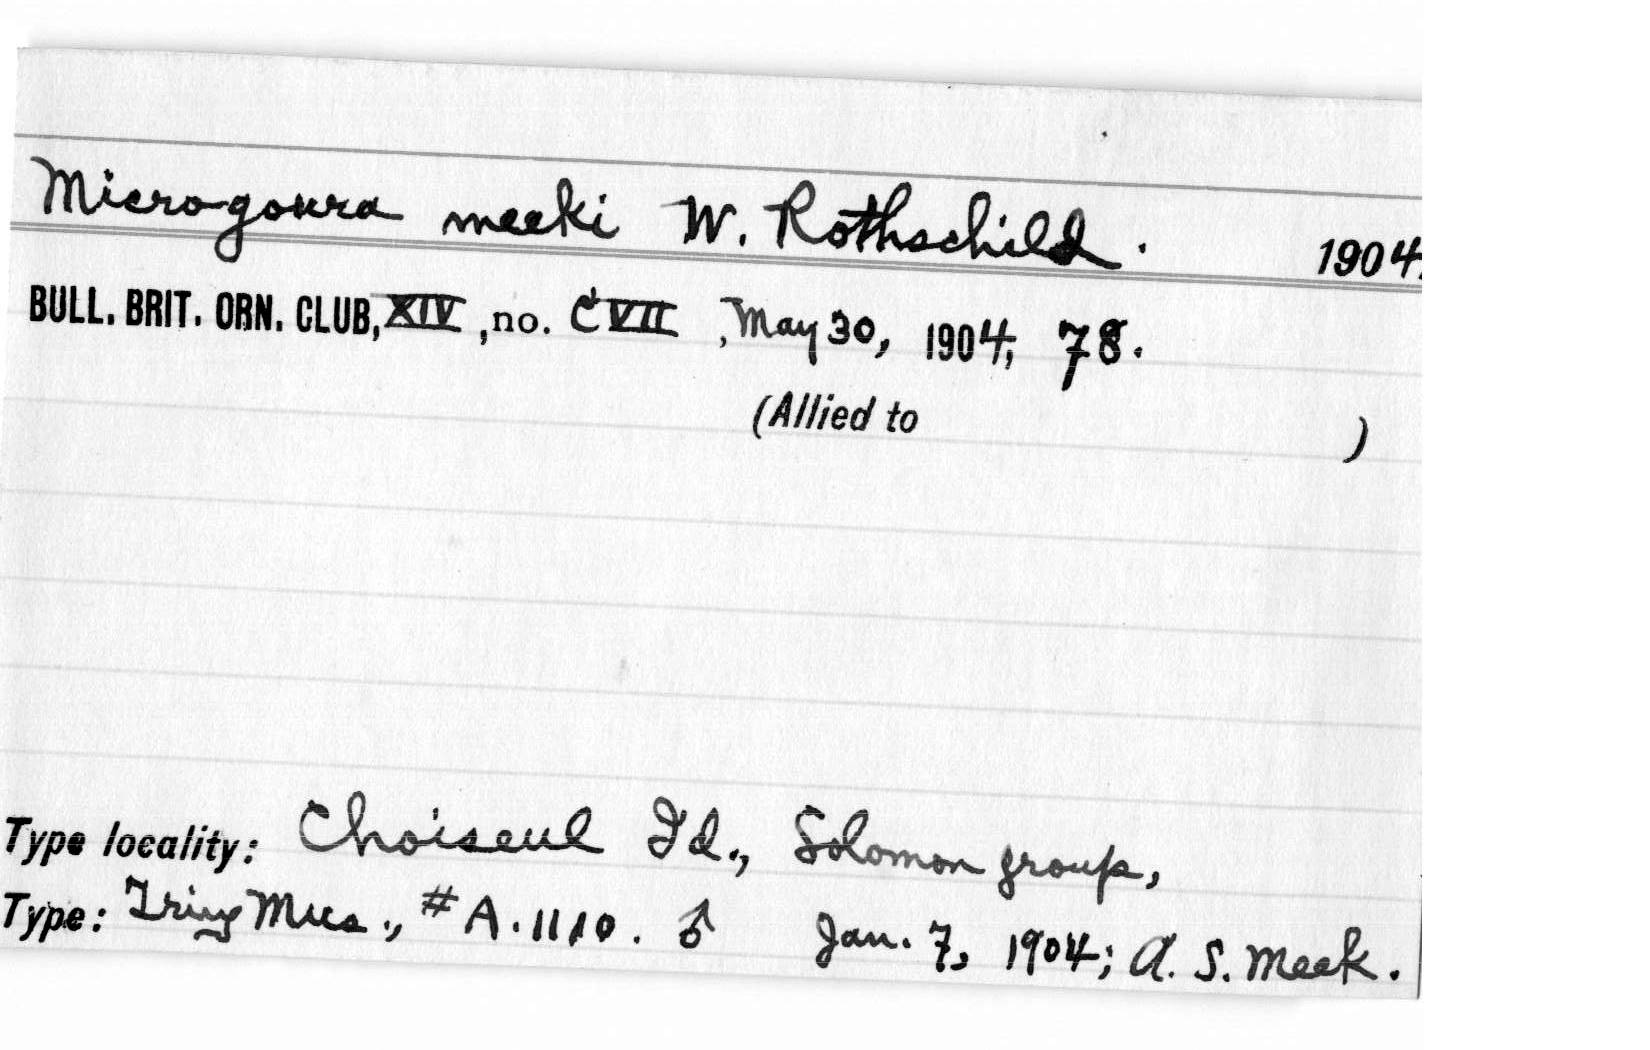 Microgoura meeki W. Rothschild. 1904.
BULL. BRIT. ORN. CLUB, XIV, no. CVII, May 30, 1904, 78.
(Allied to )
Type locality: Choiseul Id., Solomon group,
Type: Tring Mus., #A.1110. ♂ Jan. 7, 1904; A. S. Meek.